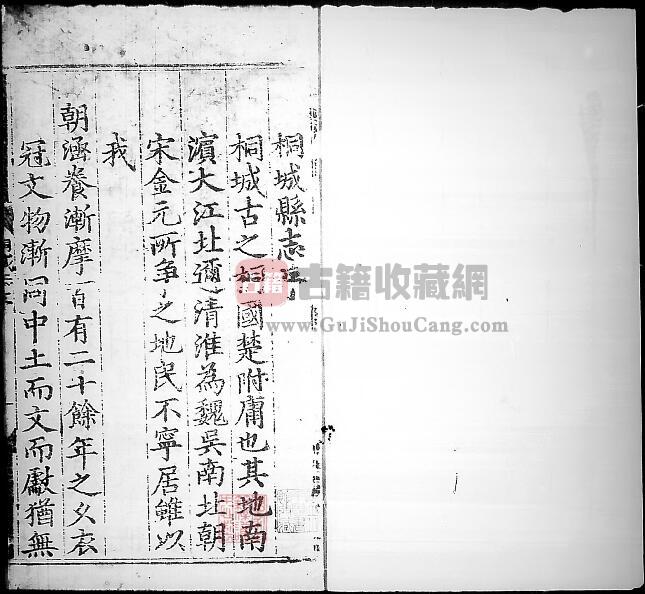 桐城縣志
桐城古之桐國楚附庸也其地南
濵大江北彌清淮為魏吳南北朝
宋金元所爭之地民不寧居雖以
我
朝涵養漸摩百有二十餘年之久衣
冠文物漸同中土而文而獻猶無
古籍 古籍收藏網
www.GuJiShouCang.com